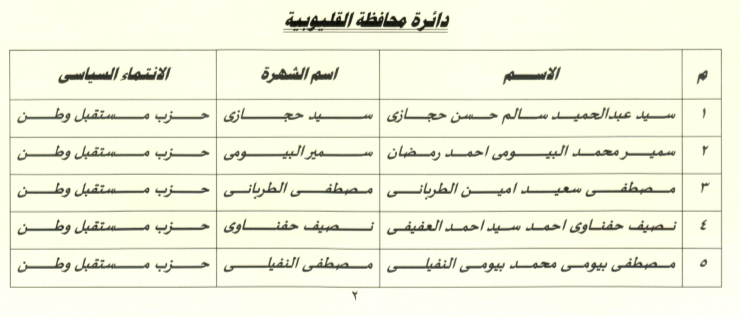 دائرة محافظة القليوبية
م الاسم اسم الشهرة الانتماء السياسى
١ سيد عبدالحميد سالم حسن حجازى سيد حجازى حزب مستقبل وطن
٢ سمير محمد البيومى احمد رمضان سمير البيومى حزب مستقبل وطن
٣ مصطفى سعيد امين الطربانى مصطفى الطربانى حزب مستقبل وطن
٤ نصيف حفناوى احمد سيد احمد العفيفى نصيف حفناوى حزب مستقبل وطن
٥ مصطفى بيومى محمد بيومى النفيلى مصطفى النفيلى حزب مستقبل وطن
٢